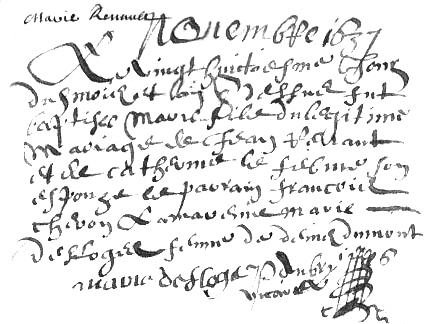 Marie Renault
Novembre 1637
Le vingt huictiesme Jour
du mois et an dessus fut
baptisee Marie fille du legitime
mariage de Jean Renaut
et de Catherine le febure son
espouze le parrain francois
cheron La mareine Marie
desloges femme de denis dumont
marie desloges Daubry
vicaire